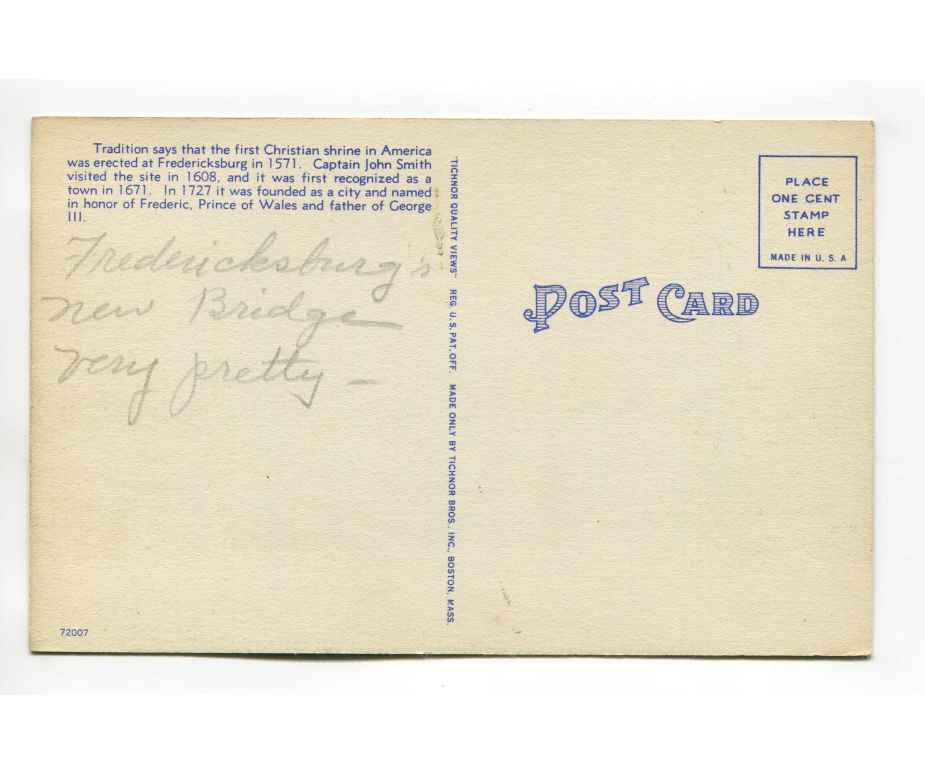 Tradition says that the first Christian shrine in America
was erected at Fredericksburg in 1571. Captain John Smith
visited the site in 1608, and it was first recognized as a
town in 1671. In 1727 it was founded as a city and named
in honor of Frederic, Prince of Wales and father of George
III.
Fredericksburg's
new Bridge
very pretty —
72007
"TICHNOR QUALITY VIEWS" REG. U.S. PAT. OFF. MADE ONLY BY TICHNOR BROS., INC., BOSTON, MASS.
POST CARD
PLACE
ONE CENT
STAMP
HERE
MADE IN U. S. A